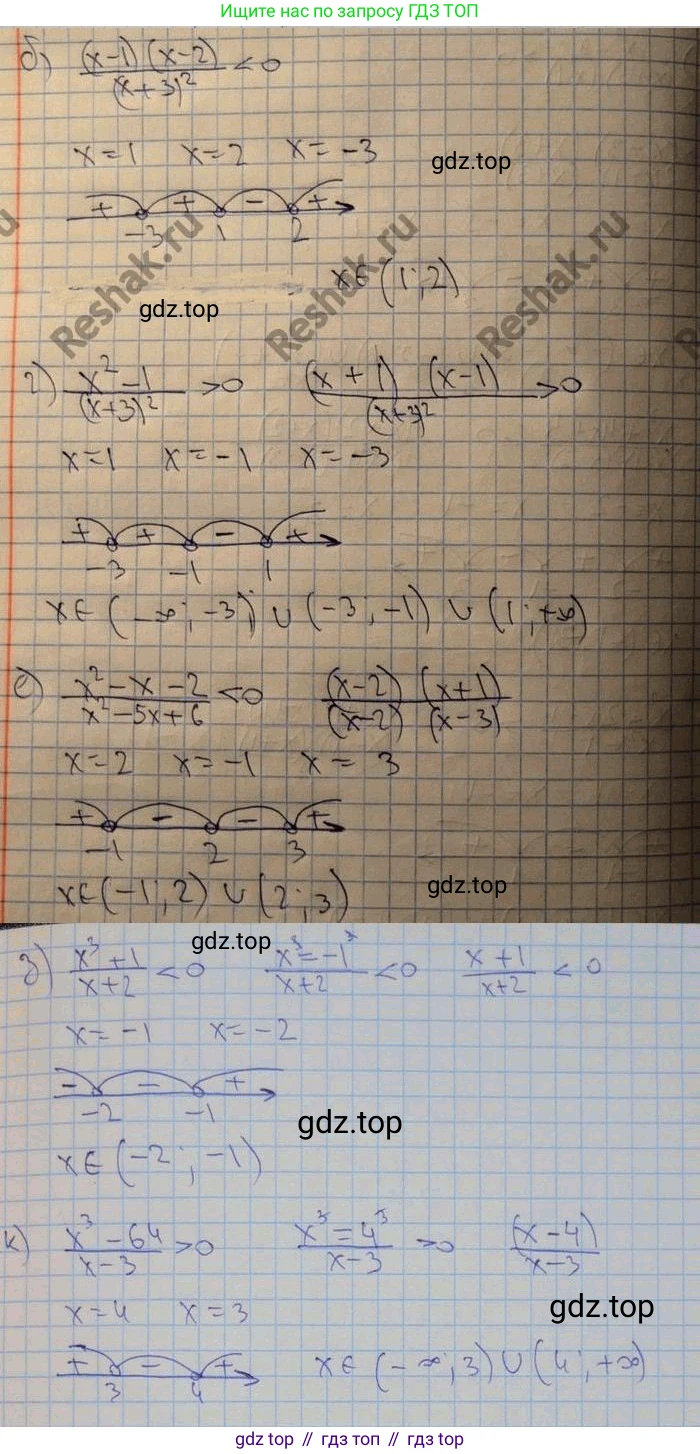 Ищите решебники по запросу ГДЗ ТОП
б) (x-1)(x-2)/(x+3)² < 0
x=1 x=2 x=-3
gdz.top
+ + - +
-3 1 2
x∈(1;2)
gdz.top
Reshak.ru Reshak.ru
г) x²-1/(x+3)² >0 (x+1)(x-1)/(x+3)² >0
x=1 x=-1 x=-3
+ + - +
-3 -1 1
x∈(-∞;-3)∪(-3;-1)∪(1;+∞)
е) x²-x-2/x²-5x+6 <0 (x-2)(x+1)/(x-2)(x-3)
x=2 x=-1 x=3
+ - - +
-1 2 3
x∈(-1;2)∪(2;3)
gdz.top
gdz.top
з) x³+1/x+2 <0 x³=-1³/x+2 <0 x+1/x+2 <0
x=-1 x=-2
- - +
-2 -1
gdz.top
x∈(-2;-1)
к) x³-64/x-3 >0 x³=4³/x-3 >0 (x-4)/x-3
x=4 x=3
gdz.top
+ - +
3 4
x∈(-∞;3)∪(4;+∞)
gdz top // гдз топ // gdz.top